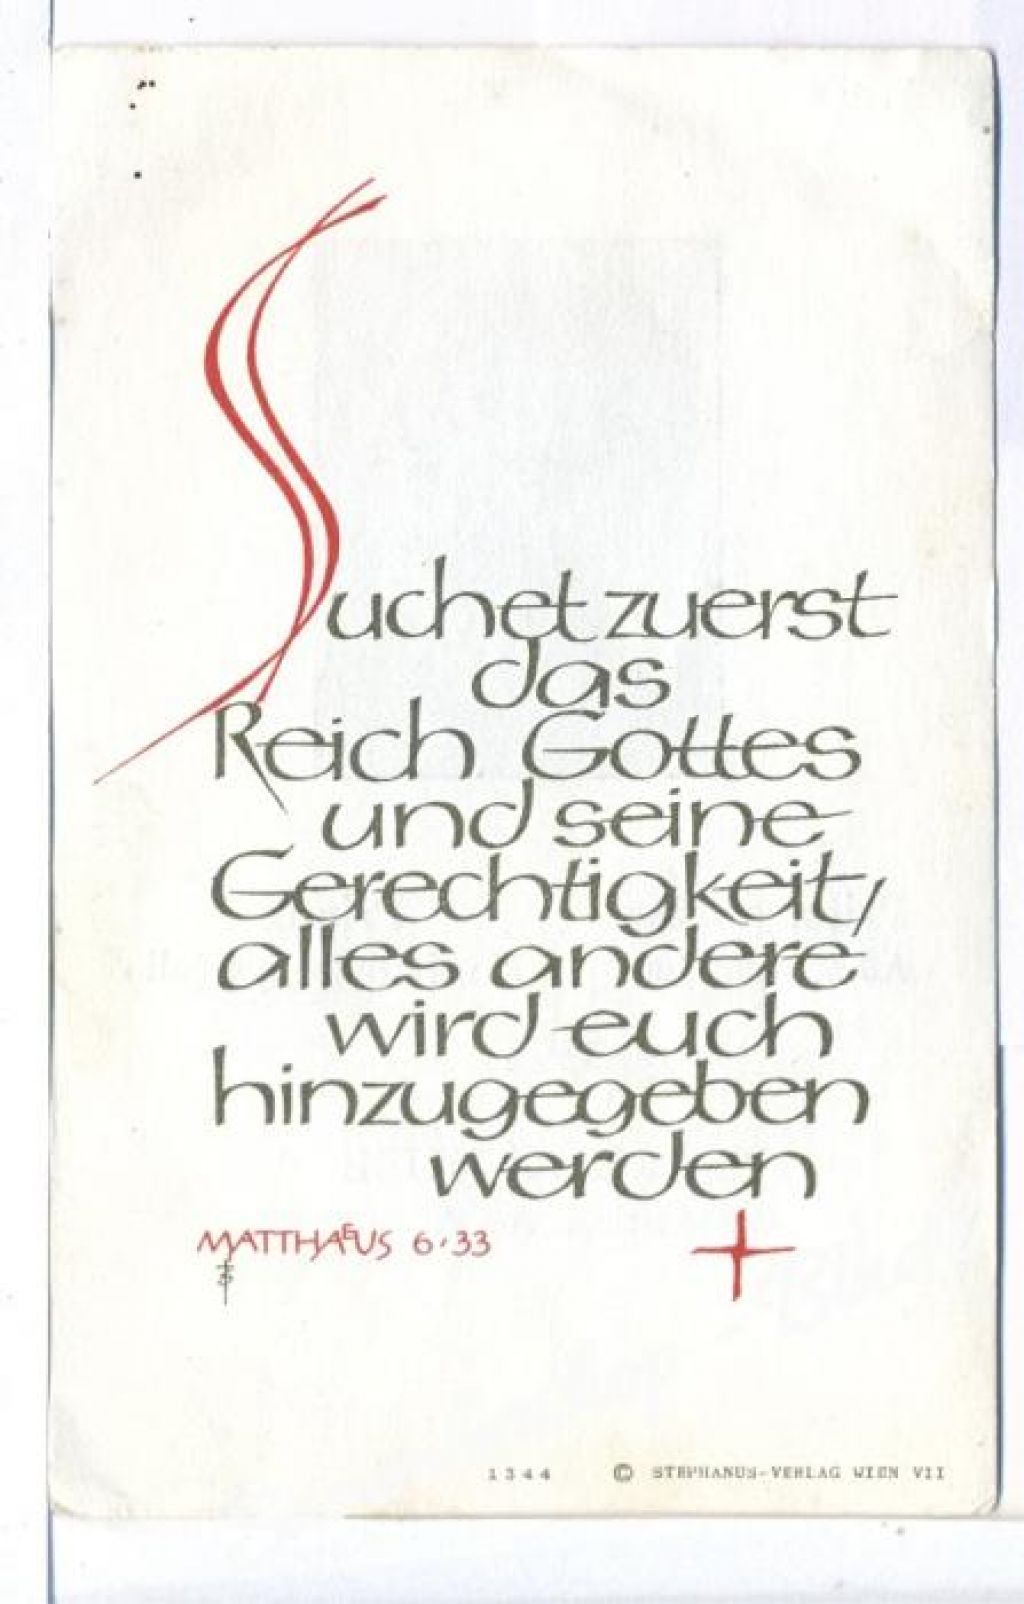 Suchet zuerst
das
Reich Gottes
und seine
Gerechtigkeit,
alles andere
wird euch
hinzugegeben
werden
MATTHAEUS 6·33
1344 © STEPHANUS-VERLAG WIEN VII